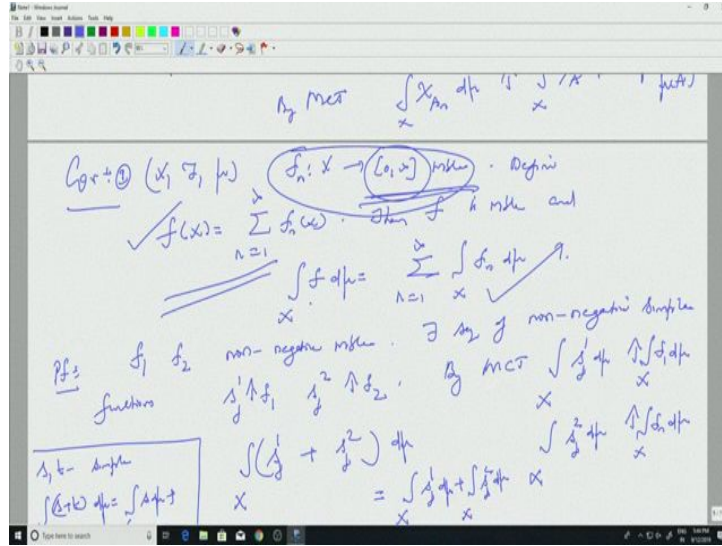 Note1 - Windows Journal
File Edit View Insert Actions Tools Help
By MCT ∫_X χ_{A_n} dμ ↑ ∫_X χ_A μ(A)
Cor:② (X, F, μ) f_n: X → [0, ∞] mble. Define
f(x) = Σ_{n=1}^∞ f_n(x). Then f is mble and
∫_X f dμ = Σ_{n=1}^∞ ∫_X f_n dμ.
Pf: f_1 f_2 non-negative mble. ∃ seq of non-negative simple
functions s_j^1 ↑ f_1 s_j^2 ↑ f_2. By MCT ∫_X s_j^1 dμ ↑ ∫_X f_1 dμ
∫_X s_j^2 dμ ↑ ∫_X f_2 dμ
s, t - simple
∫(s+t) dμ = ∫ s dμ +
∫_X (s_j^1 + s_j^2) dμ
= ∫_X s_j^1 dμ + ∫_X s_j^2 dμ
Type here to search
ENG